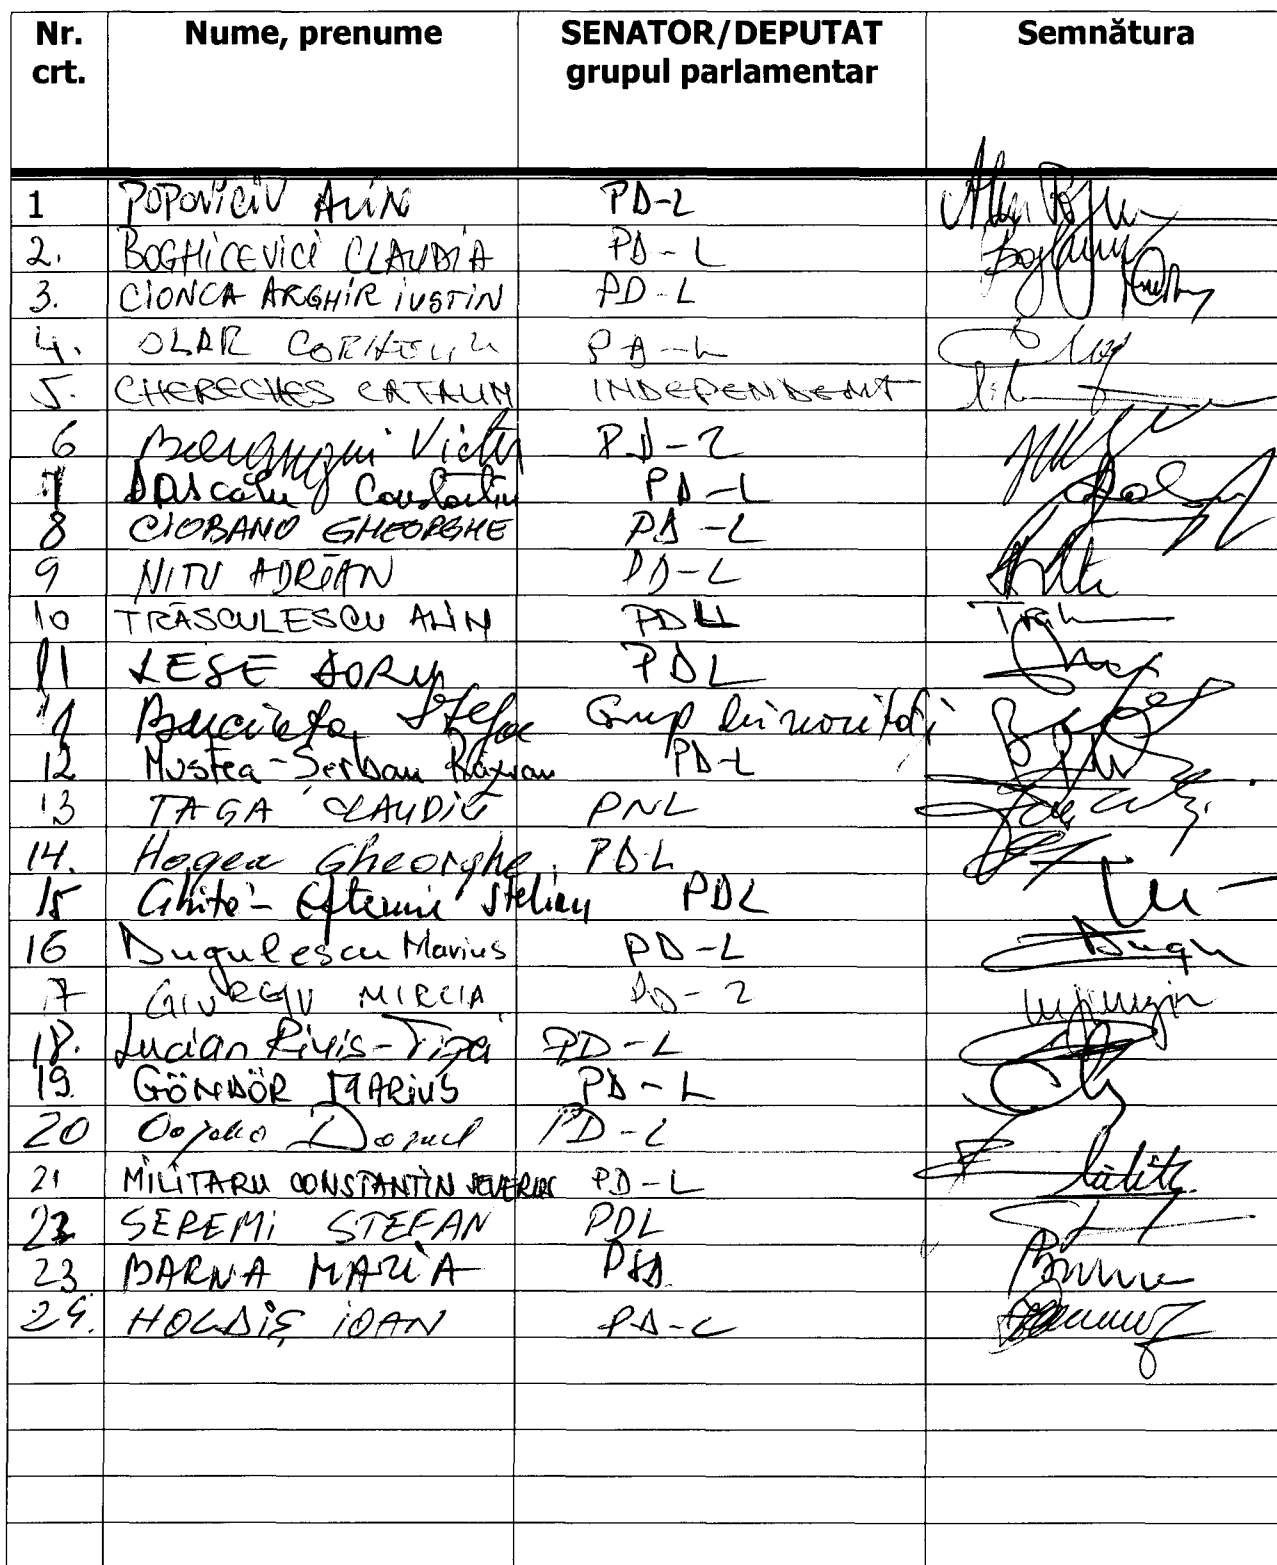 Nr. crt. Nume, prenume SENATOR/DEPUTAT grupul parlamentar Semnătura
1 POPOVICIU ALIN PD-L
2. BOGHICEVICI CLAUDIA PD-L
3. CIONCA ARGHIR IUSTIN PD-L
4. OLAR CORNELIU PD-L
5. CHERECHES CATALIN INDEPENDENT
6 Victor PD-L
7 DASCALU Constantin PD-L
8 CIOBANU GHEORGHE PD-L
9 NITU ADRIAN PD-L
10 TRĂSCULESCU ALIN PDL
11 LESE DORU PDL
Buciuta Stefan Grup minoritati
12 Mustea-Serban Răzvan PD-L
13 TAGA CLAUDIU PNL
14. Hogea Gheorghe PDL
15 Ghita-Eftemie Stelian PDL
16 Dugulescu Marius PD-L
17 GIURGIU MIRCIA PD-L
18. Lucian Riviș-Tipei PD-L
19. GÖNDÖR MARIUS PD-L
20 PD-L
21 MILITARU CONSTANTIN SEVERUS PD-L
22 SEREMI STEFAN PDL
23 BARNA MARIA PSD
24. HOLDIȘ IOAN PD-L